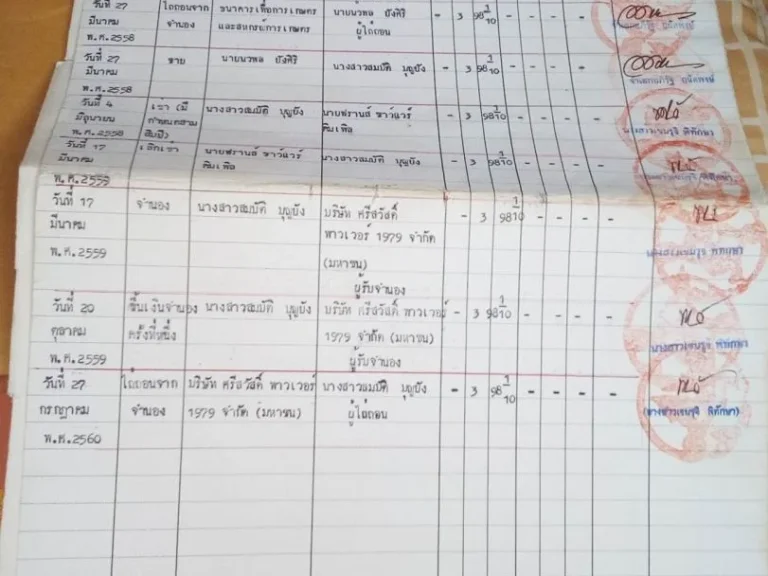 วันที่ 27 ไถ่ถอนจาก ธนาคารเพื่อการเกษตร นายนวพล ยังศิริ - 3 98 1/10 - - - -
มีนาคม จำนอง และสหกรณ์การเกษตร ผู้ไถ่ถอน
พ.ศ.2558
วันที่ 27 ขาย นายนวพล ยังศิริ นางสาวสมบัติ บุญยัง - 3 98 1/10 - - - -
มีนาคม
พ.ศ.2558
วันที่ 4 เช่า (มี นางสาวสมบัติ บุญยัง นายฟรานส์ - 3 98 1/10 - - - -
มิถุนายน กำหนดสาม
พ.ศ.2558 สิบปี)
วันที่ 17 เลิกเช่า นายฟรานส์ นางสาวสมบัติ บุญยัง - 3 98 1/10 - - - -
มีนาคม
พ.ศ.2559
วันที่ 17 จำนอง นางสาวสมบัติ บุญยัง บริษัท ศรีสวัสดิ์ - 3 98 1/10 - - - -
มีนาคม พาวเวอร์ 1979 จำกัด
พ.ศ.2559 (มหาชน)
ผู้รับจำนอง
วันที่ 20 ขึ้นเงินจำนอง นางสาวสมบัติ บุญยัง บริษัท ศรีสวัสดิ์ พาวเวอร์ - 3 98 1/10 - - - -
ตุลาคม ครั้งที่หนึ่ง 1979 จำกัด (มหาชน)
พ.ศ.2559 ผู้รับจำนอง
วันที่ 27 ไถ่ถอนจาก บริษัท ศรีสวัสดิ์ พาวเวอร์ นางสาวสมบัติ บุญยัง - 3 98 1/10 - - - -
กรกฎาคม จำนอง 1979 จำกัด (มหาชน) ผู้ไถ่ถอน
พ.ศ.2560